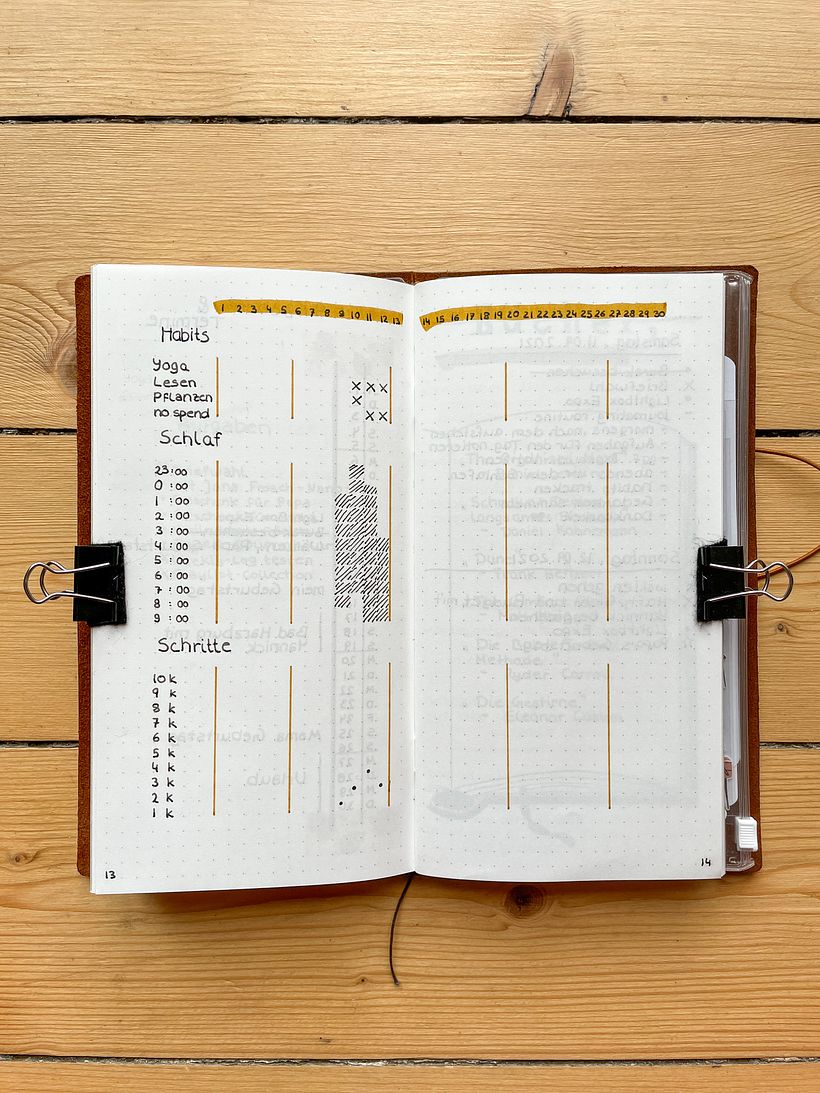 1 2 3 4 5 6 7 8 9 10 11 12 13
14 15 16 17 18 19 20 21 22 23 24 25 26 27 28 29 30
Habits
Yoga
Lesen x x x
Pflanzen x
no spend x x
Schlaf
23:00
0 :00
1 :00
2 :00
3 :00
4 :00
5 :00
6 :00
7 :00
8 :00
9 :00
Schritte
10 k
9 k
8 k
7 k
6 k
5 k
4 k
3 k
2 k
1 k
13
14